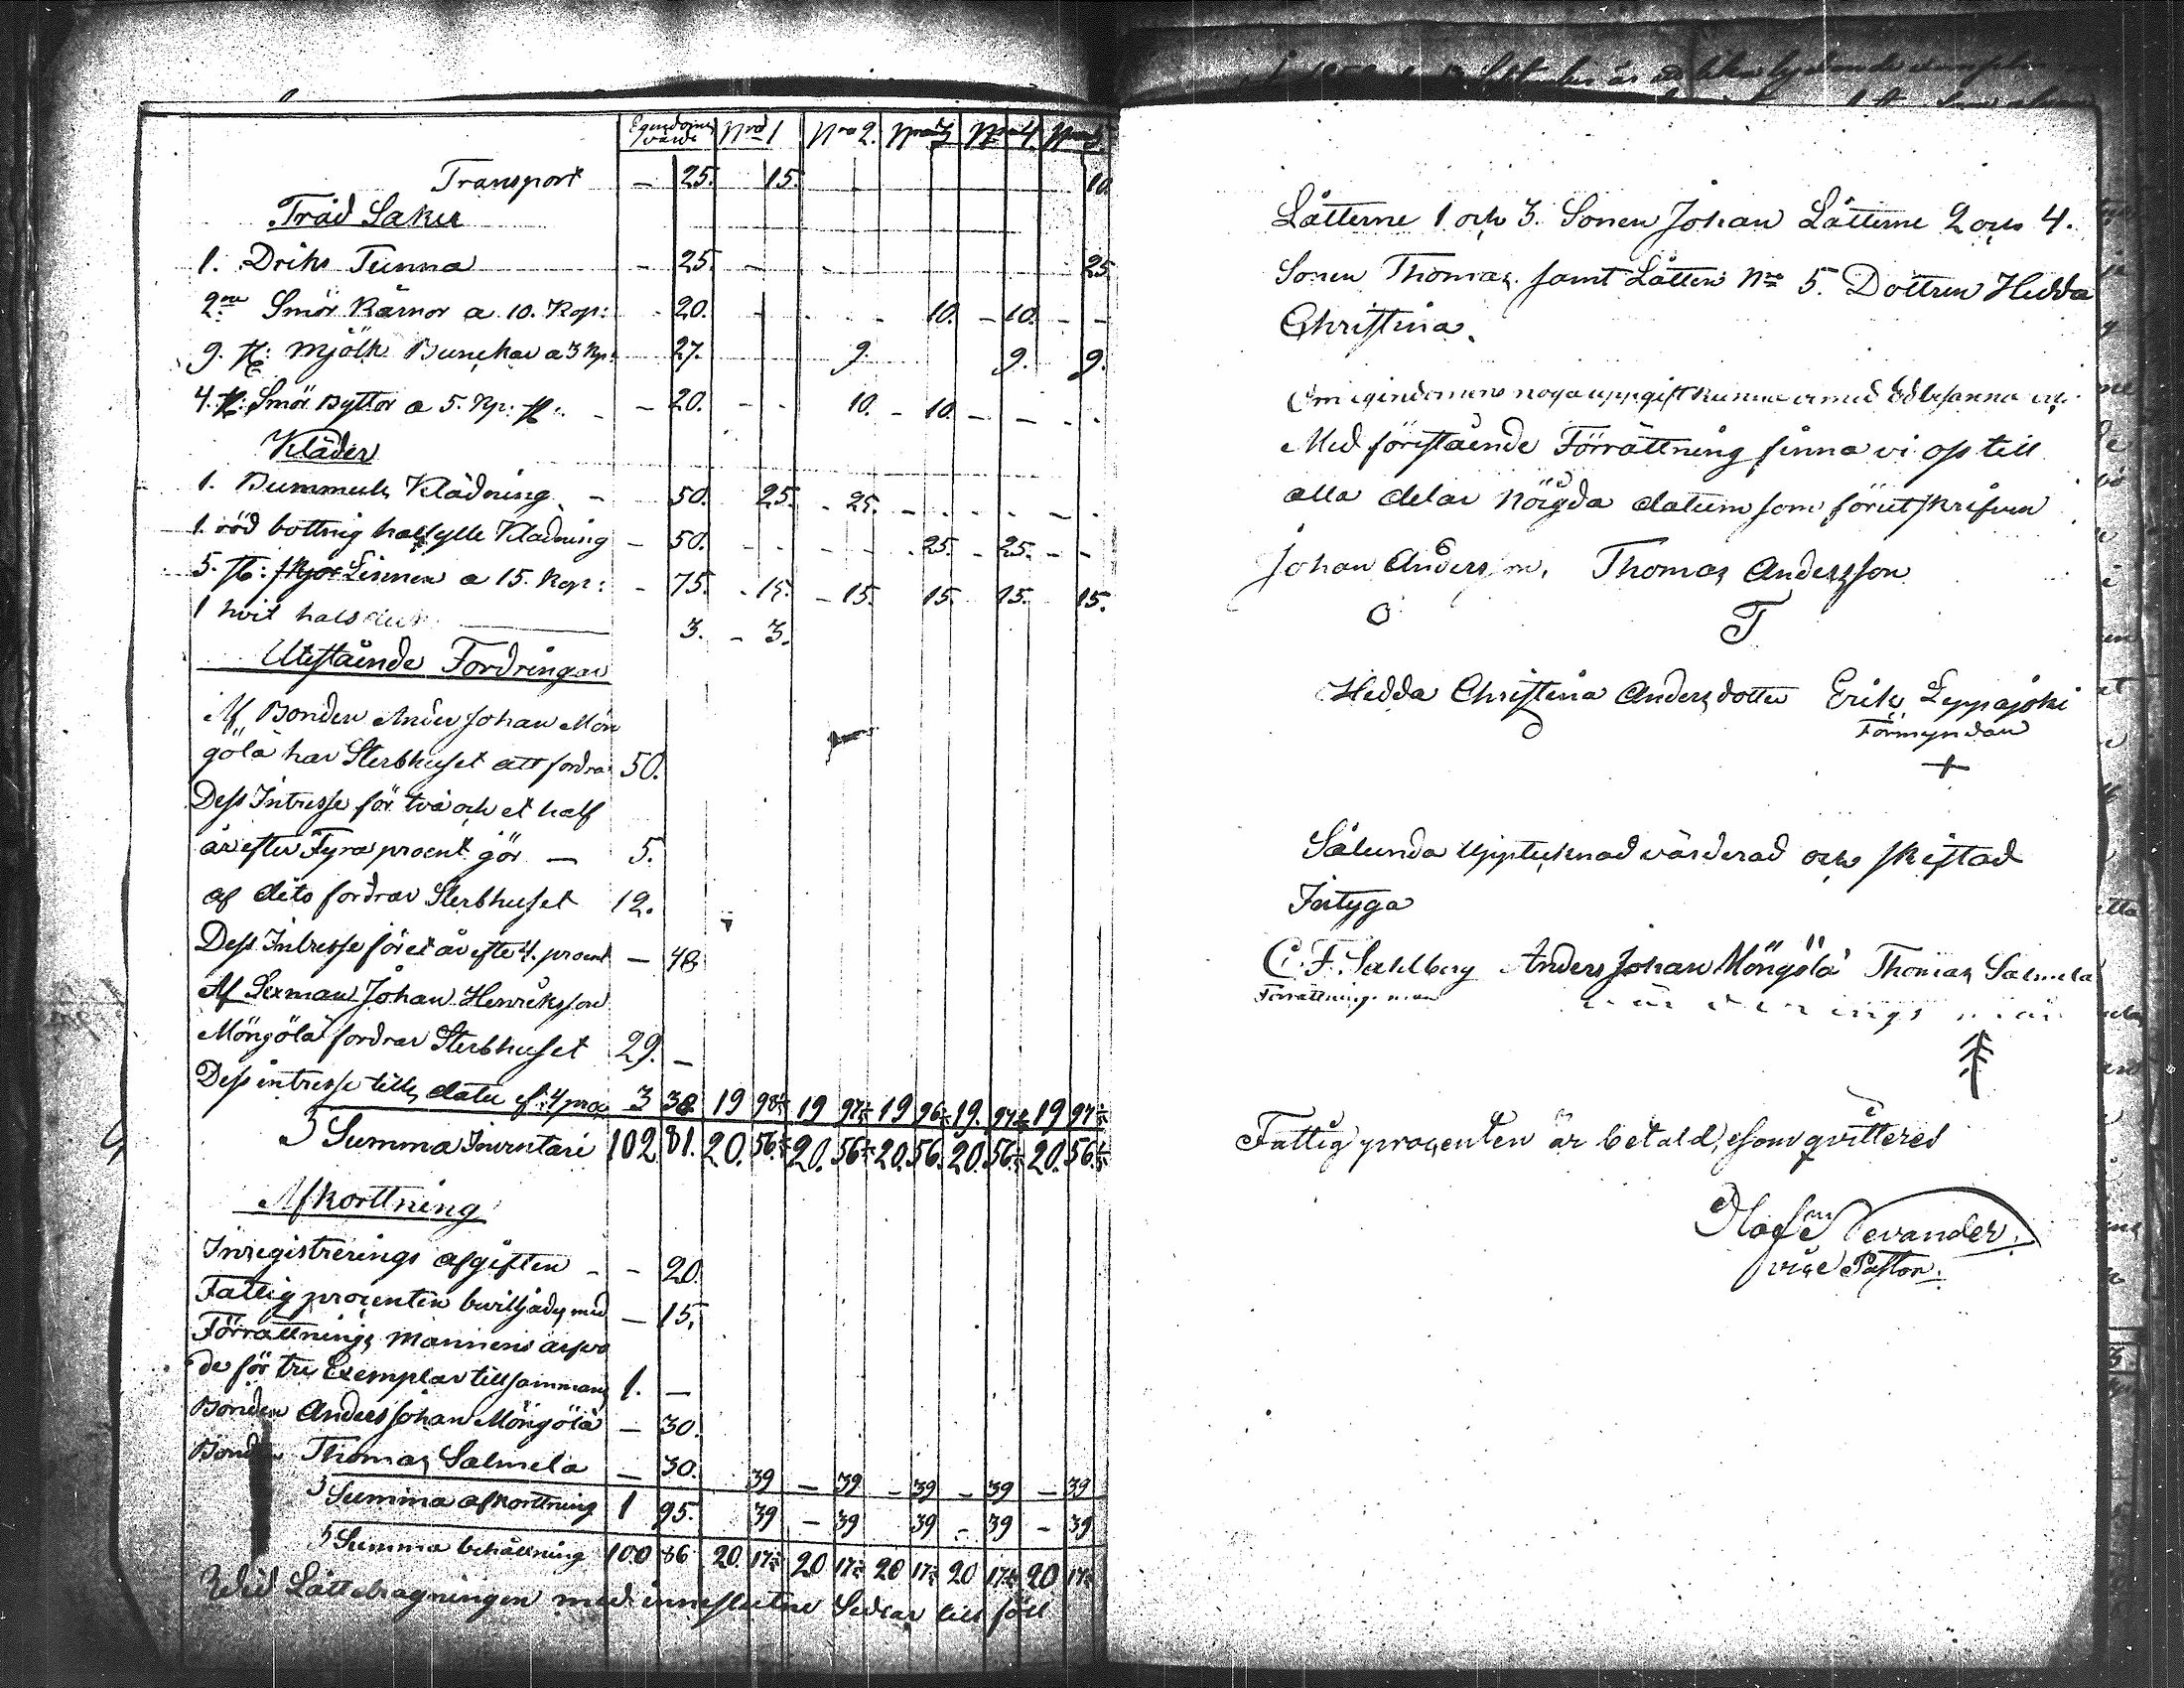 Egendoms värde Nro 1 Nro 2. Nro 3 Nro 4. Nro 5.
Transport — 25. 15. 10
Träd Saker
1. Driks Tunna - 25. - 25
2ne Smör Kärnor a 10. Kop: - 20. - - 10. - 10. - -
9. st: Mjölk Bunckar a 3 Kp: 27. 9. 9. 9.
4. st: Smör Byttor a 5. Kp: st: - - 20. - - 10. - 10. - - - -
Kläder
1. Bummuls Klädning - 50. 25. - 25. - - - - -
1. röd bottnig halfylle Kladning - 50. - - - - 25. - 25. - -
5. st: Linnen a 15. Kop: - 75. - 15. - 15. 15. 15. 15.
1 hvit halsduk 3. - 3.
Utestående Fordringar
Af Bonden Ander Johan Mön
gölä har Sterbhuset att fordra 50.
Dess Intresse för två och et half
år efter Fyra procent gör — 5.
af dito fordrar Sterbhuset 12.
Dess Intresse för et år efter 4. procent — 48
Af Sexman Johan Henriksson
Möngölä fordrar Sterbhuset 29. —
Dess intresse till dato ef: 4 pro 3 38 19 98 19 97 19 96 19. 97 19 97
Summa Inventari 102 81. 20. 56. 20. 56 20. 56. 20. 56. 20. 56.
Afkorttning
Inregistrerings afgiften - - 20.
Fattig procenten beviljades med — 15.
Förrättnings Mannens arfvo
de för tre Exemplar tillsammans 1. —
Bonden Anders Johan Möngölä — 30.
Bonden Thomas Salmela — 30. 39 — 39 — 39 — 39 — 39
Summa afkorttning 1 95. 39 — 39 39 - 39 - 39
Summa behållning 100 86 20. 17 20 17 20 17 20 17 20 17
Wid Lättdragningen med inneslutne Sedlar till föll
Låtterne 1 och 3. Sonen Johan Låtterne 2 och 4.
Sonen Thomas samt Låtten No 5. Dottren Hedda
Christina.
Om egindomens noga uppgift kunna vi med Ed besanna
Med förestående Förrättning finna vi oss till
alla delar nöigda datum som förut skrifven
Johan Andersson, Thomas Andersson
O T
Hedda Christina Andersdotter Erik Leppäjoki
Förmyndare
+
Sålunda Upptecknad värderad och skiftad
Intyga
C. F. Sahlberg Anders Johan Möngölä Thomas Salmela
Förrättnings man värderings män
Fattig procenten är betald, som qvitteres
Olof Nevander
vice Pastor.